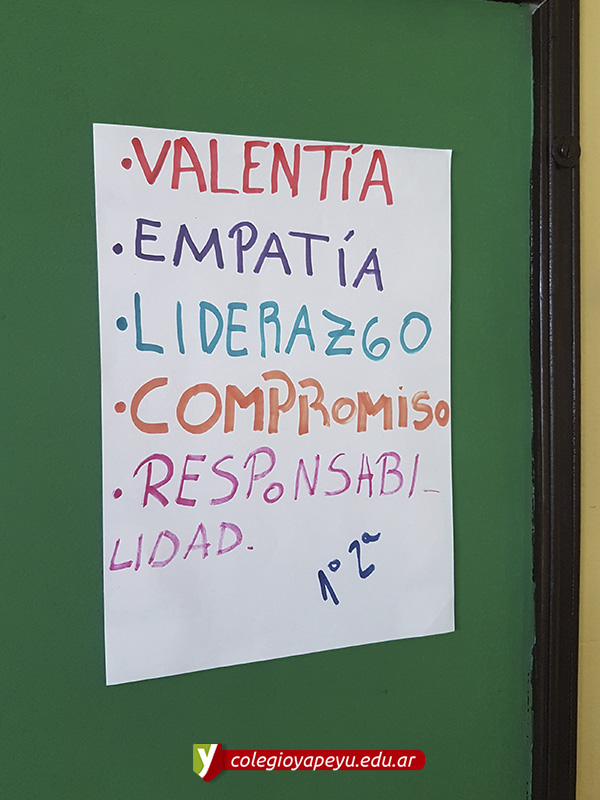 • VALENTÍA
• EMPATÍA
• LIDERAZGO
• COMPROMISO
• RESPONSABI-
LIDAD.
1º 2ª
y colegioyapeyu.edu.ar